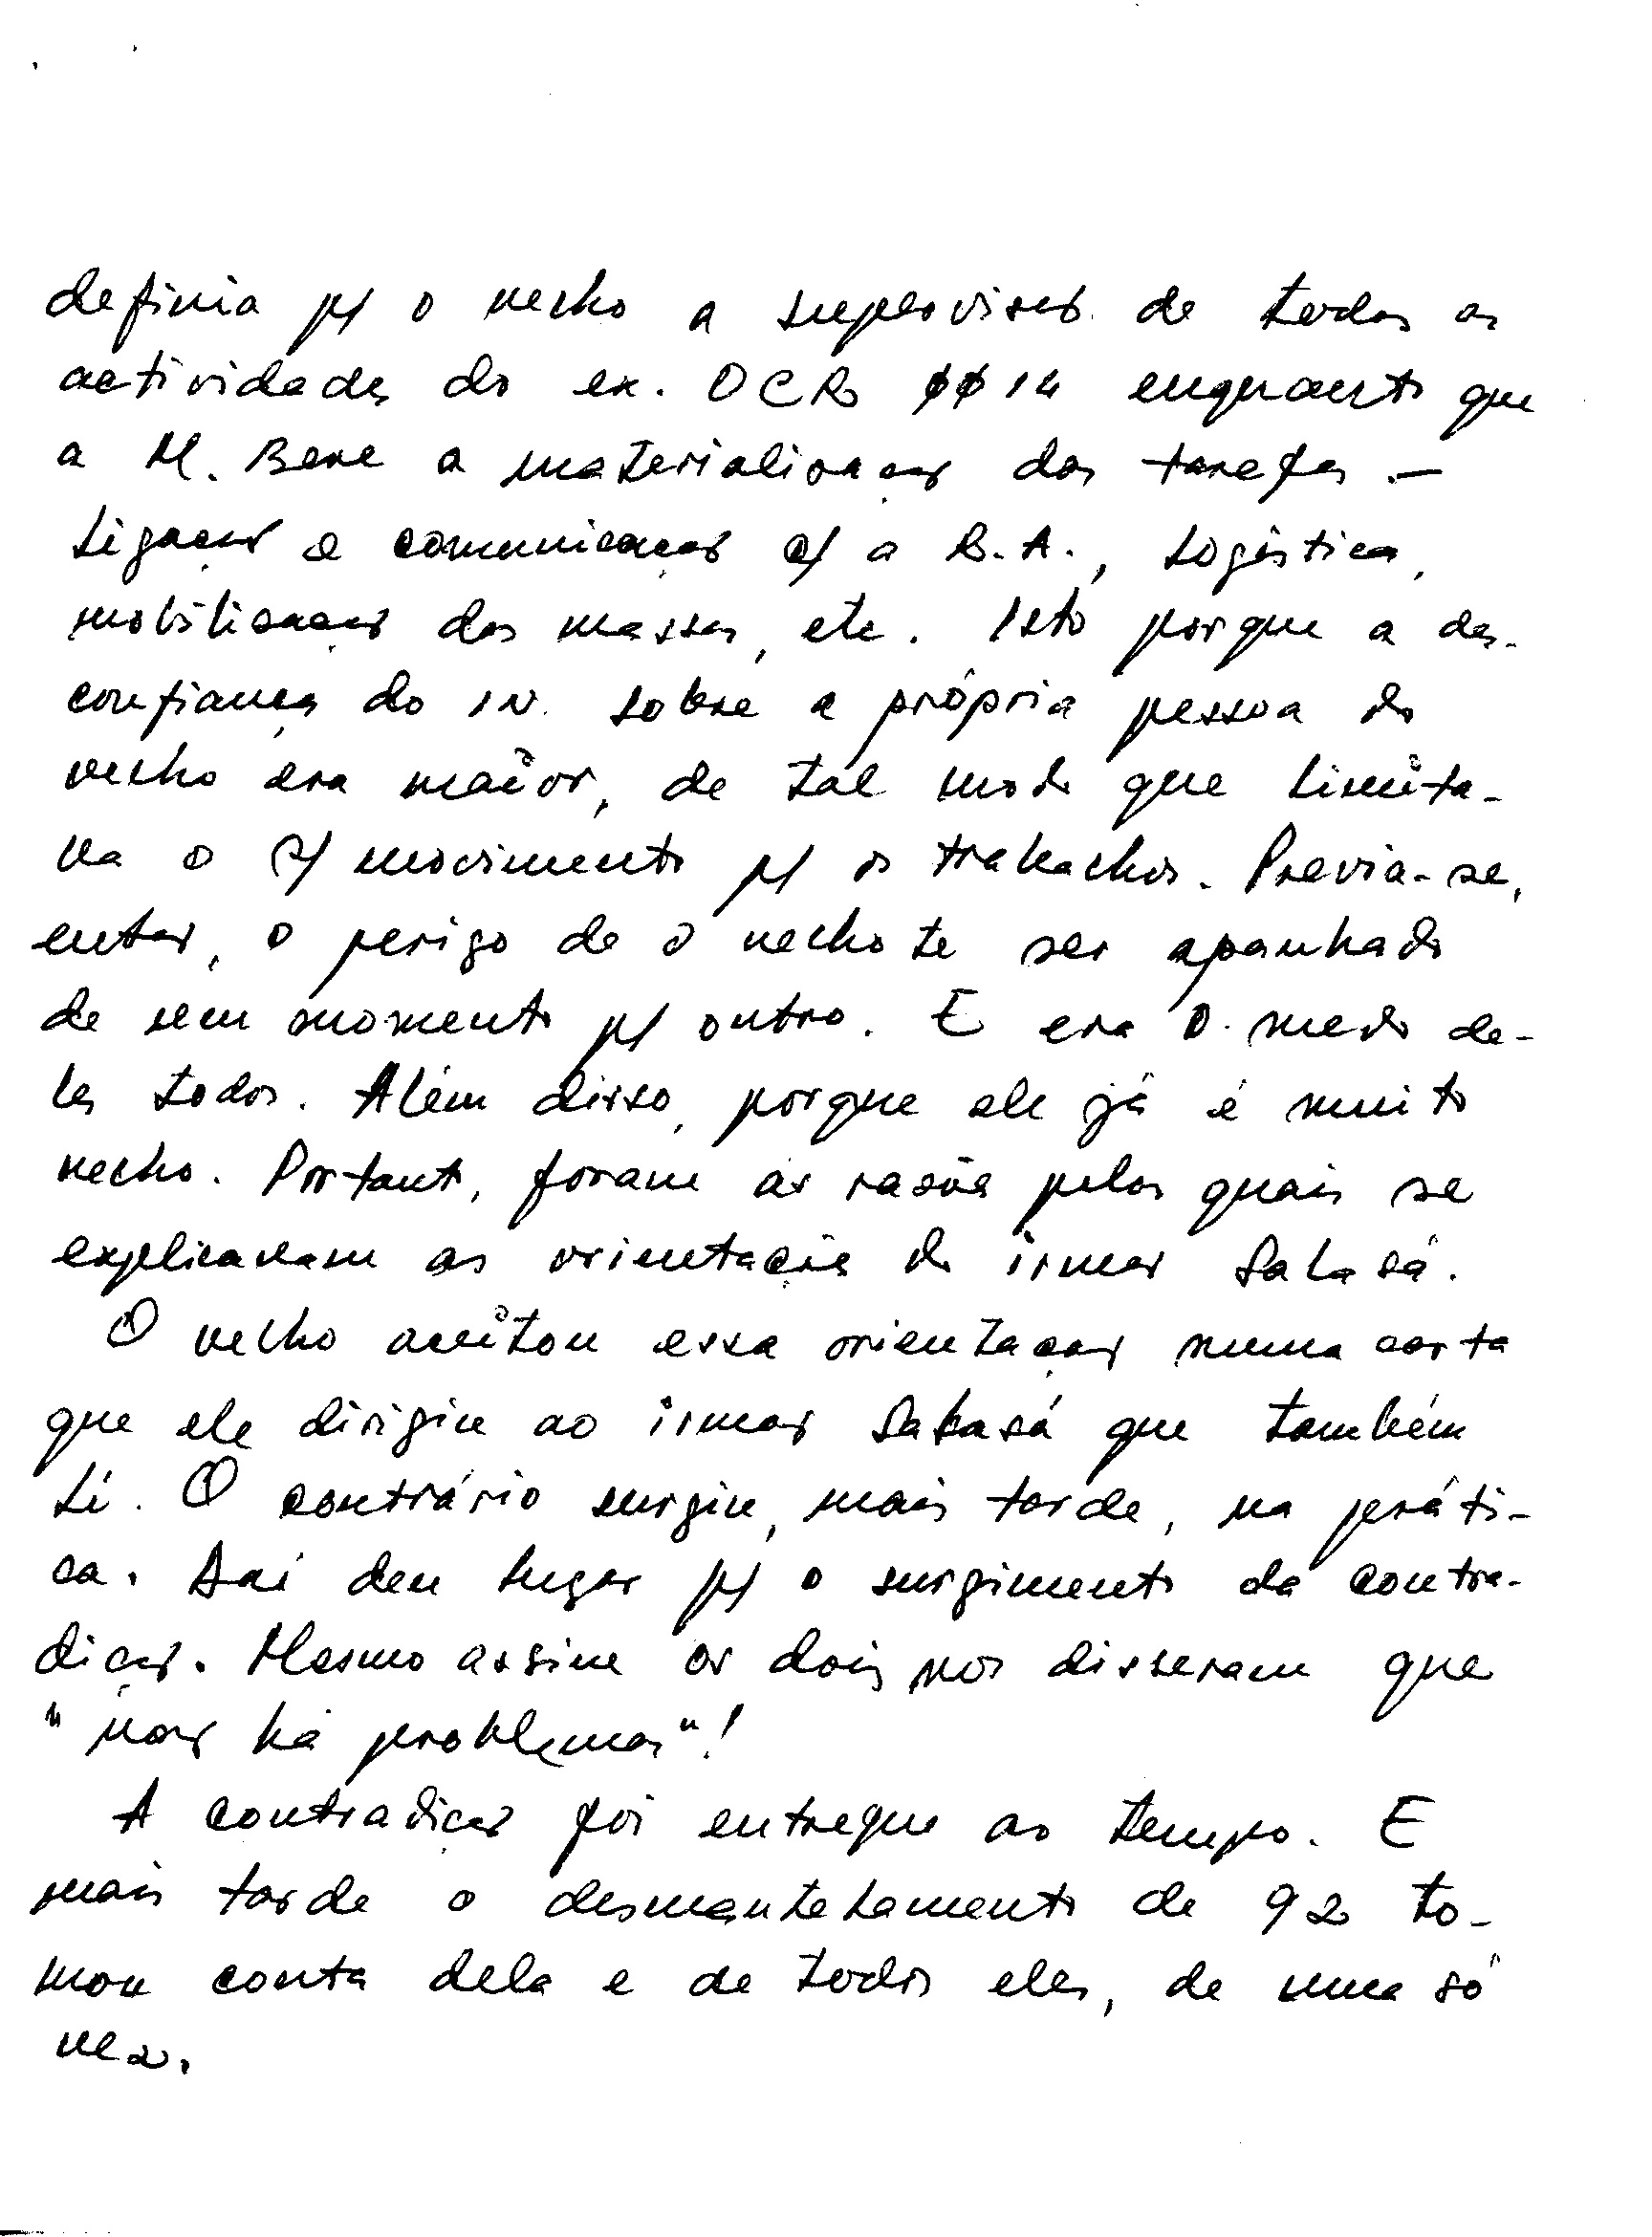 definia p/ o velho a supervisão de todas as
actividades do ex. OCR ØØ14 enquanto que
a M. Bene a materialização das tarefas. —
Ligação e comunicação c/ a B.A., Logística,
mobilização das massas, etc. Isto porque a des-
confiança do IN. sobre a própria pessoa do
velho era maior, de tal modo que limita-
va o s/ movimento p/ os trabalhos. Previa-se,
então, o perigo de o velhote ser apanhado
de um momento p/ outro. E era o medo de-
les todos. Além disso, porque ele já é muito
velho. Portanto, foram as razões pelas quais se
explicavam as orientações do irmão Sabasá.
O velho aceitou essa orientação numa carta
que ele dirigiu ao irmão Sabasá que também
li. O contrário surgiu, mais tarde, na práti-
ca. Daí deu lugar p/ o surgimento da contra-
dição. Mesmo assim os dois nos disseram que
"não há problemas"!
A contradição foi entregue ao tempo. E
mais tarde o desmantelamento de 92 to-
mou conta dela e de todos eles, de uma só
vez.